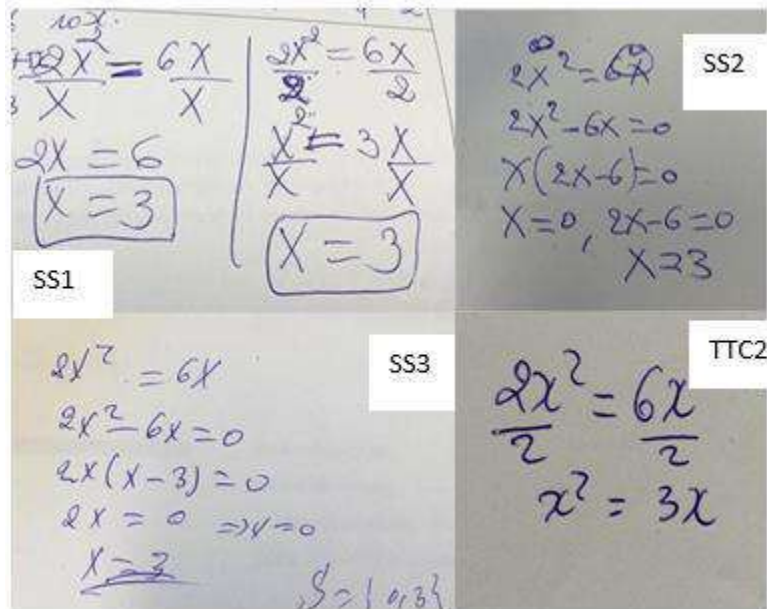 10x.
2x² / x = 6x / x
2x = 6
x = 3
2x² / 2 = 6x / 2
x² / x = 3x / x
x = 3
SS1
2x² = 6x
2x² - 6x = 0
x(2x-6) = 0
x = 0, 2x-6 = 0
x = 3
SS2
2x² = 6x
2x² - 6x = 0
2x(x-3) = 0
2x = 0 => x = 0
x = 3
S = {0,3}
SS3
2x² / 2 = 6x / 2
x² = 3x
TTC2